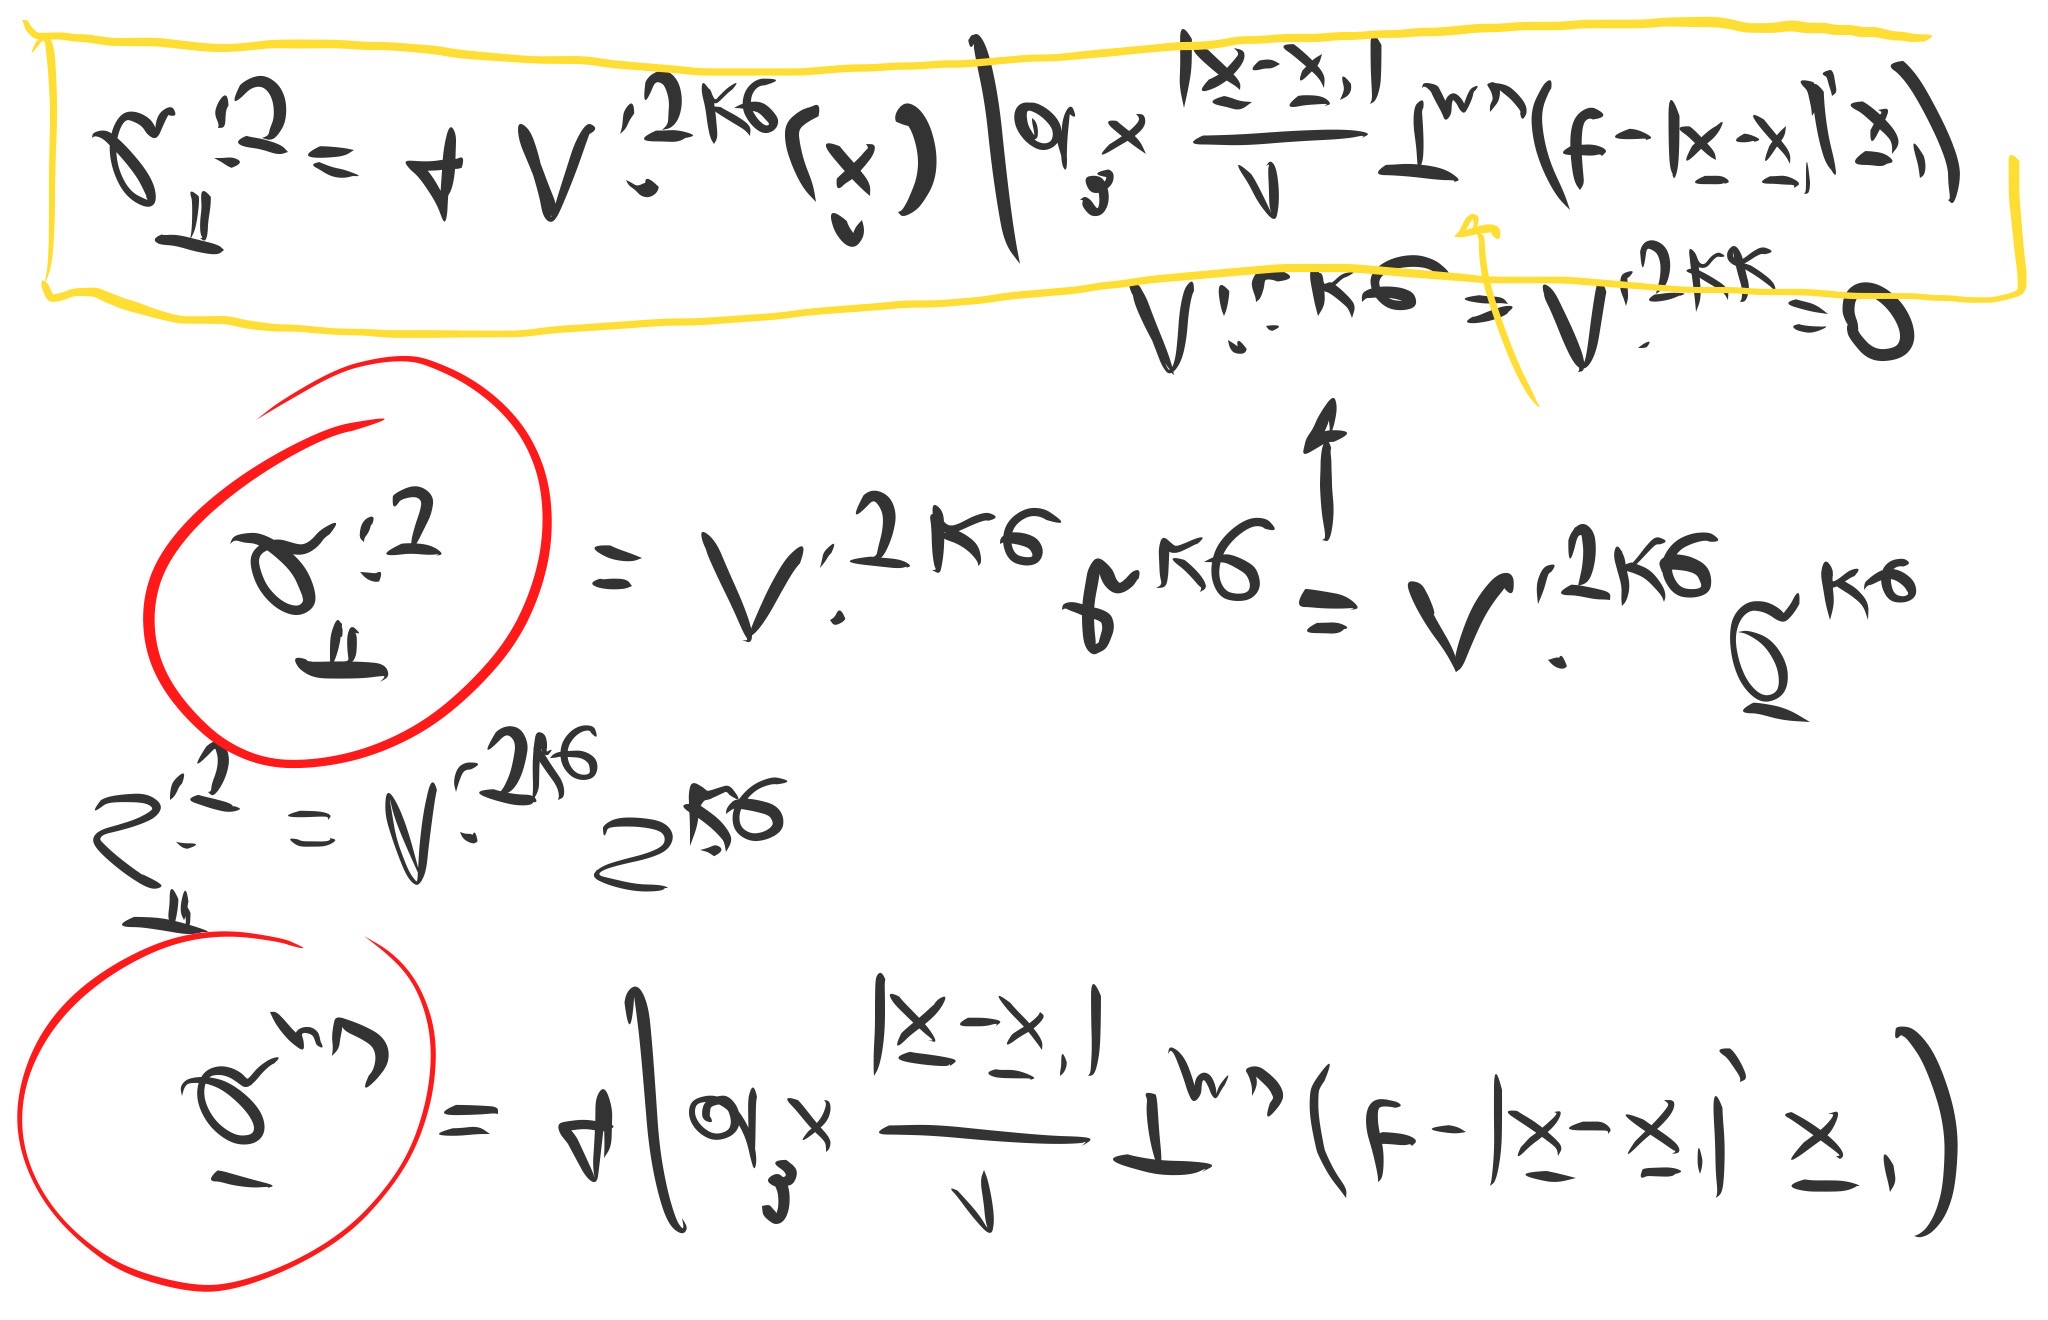 h̄_μν = 4 ∫ d³x 1/|x̄-x̄'| T_μν (t - |x̄-x̄'|, x̄')
S_ij^TT = Λ_ijkl S_kl
h_ij^TT = Λ_ijkl h_kl = Λ_ijkl h̄_kl
↓
Λ_iikl = Λ_ijkk = 0
h_ij^TT = 4 Λ_ijkl (x̂) ∫ d³x 1/|x̄-x̄'| T_μν (t - |x̄-x̄'|, x̄')